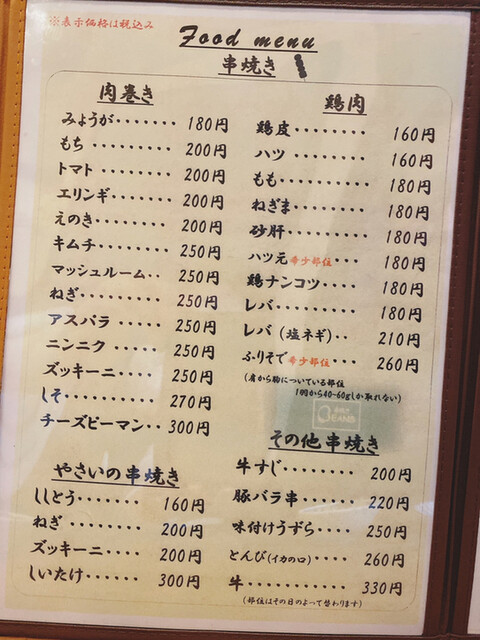 ※表示価格は税込み
Food menu
串焼き
肉巻き
みょうが・・・・・・・ 180円
もち・・・・・・・・・ 200円
トマト・・・・・・・・ 200円
エリンギ・・・・・・・ 200円
えのき・・・・・・・・ 200円
キムチ・・・・・・・・ 250円
マッシュルーム・・ 250円
ねぎ・・・・・・・・・ 250円
アスパラ・・・・・・ 250円
ニンニク・・・・・ 250円
ズッキーニ・・・・ 250円
しそ・・・・・・・・・ 270円
チーズピーマン・・ 300円
やさいの串焼き
ししとう・・・・・ 160円
ねぎ・・・・・・・・ 200円
ズッキーニ・・・・ 200円
しいたけ・・・・・・ 300円
鶏肉
鶏皮・・・・・・・・ 160円
ハツ・・・・・・・・ 160円
もも・・・・・・・・ 180円
ねぎま・・・・・・・ 180円
砂肝・・・・・・・・ 180円
ハツ元希少部位・・・ 180円
鶏ナンコツ・・・・ 180円
レバ・・・・・・・・ 180円
レバ(塩ネギ)・・ 210円
ふりそで希少部位・・・ 260円
(肩から胸についている部位
1羽から40-60gしか取れない)
その他串焼き
牛すじ・・・・・・・ 200円
豚バラ串・・・・・ 220円
味付けうずら・・・・ 250円
とんび(イカの口)・・・・ 260円
牛・・・・・・・・・ 330円
(部位はその日のよって替わります)